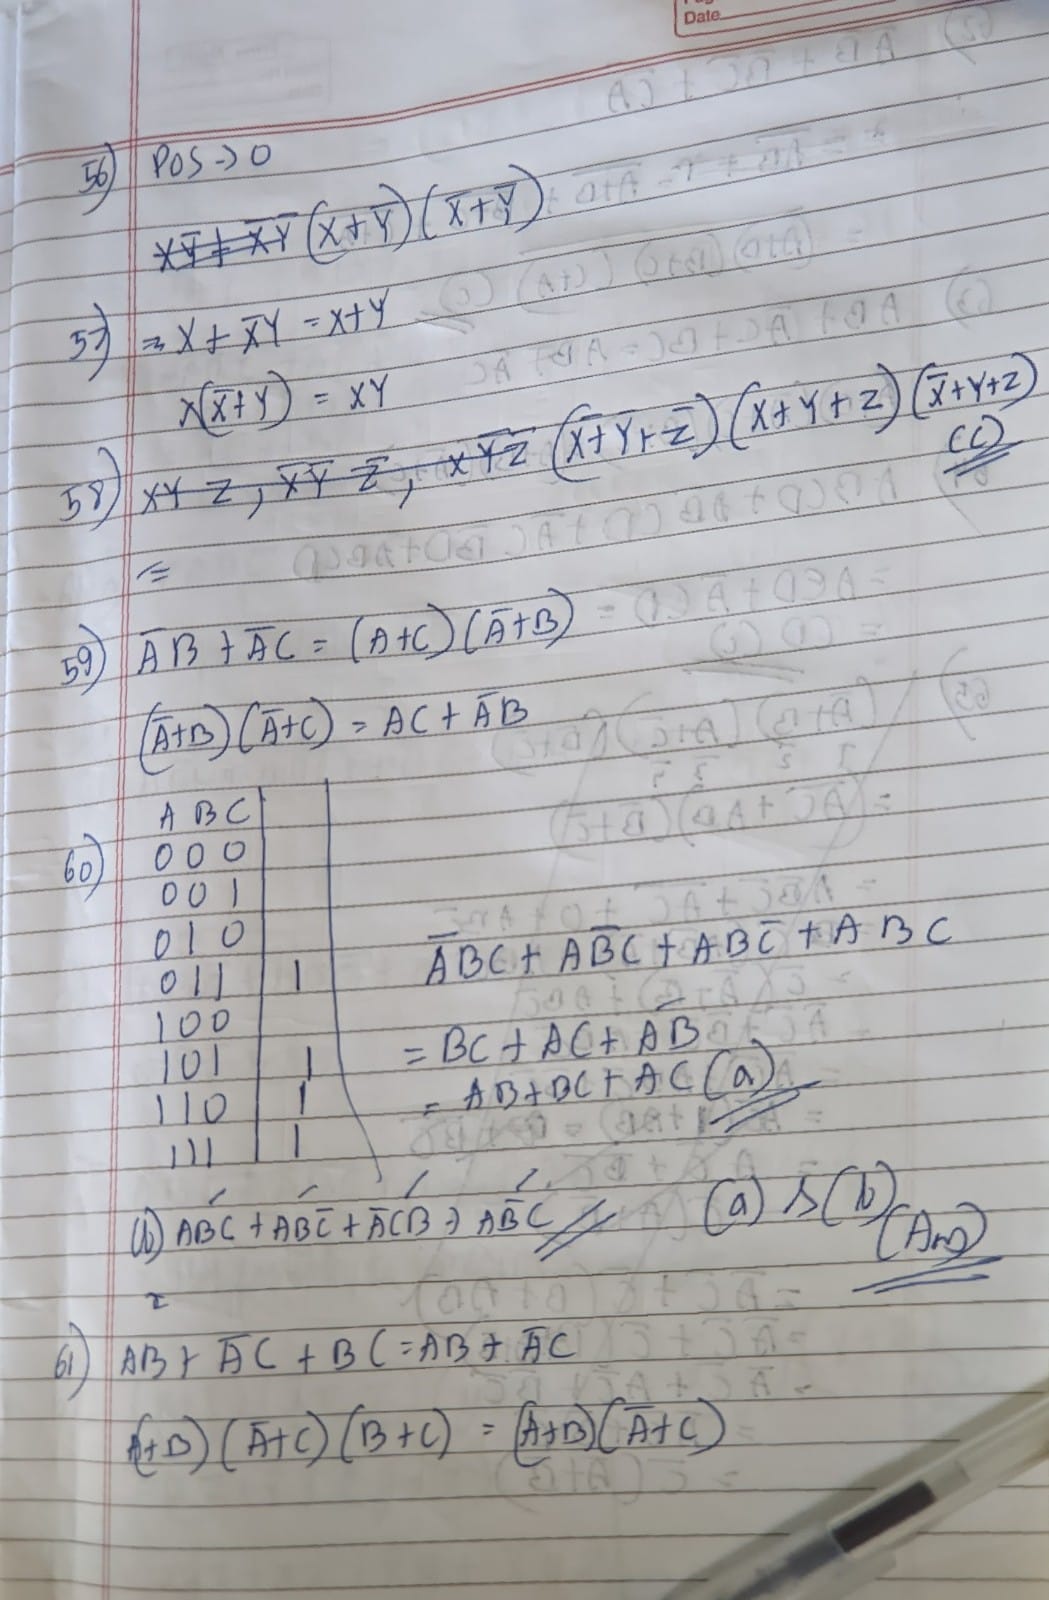 Date
56) POS → 0
X̅Y̅ + X̅Y̅ (X+Y̅)(X̅+Y̅)
57) = X + X̅Y = X+Y
X(X̅+Y) = XY
58) XY Z, X̅Y̅ Z̅, XY̅Z̅ (X̅+Y̅+Z̅)(X+Y+Z)(X̅+Y+Z)
(C)
=
59) A̅B + A̅C = (A+C)(A̅+B)
(A̅+B)(A̅+C) = AC + A̅B
60) A B C
0 0 0
0 0 1
0 1 0
0 1 1 1
A̅BC + AB̅C + ABC̅ + A B C
1 0 0
1 0 1 1
= BC + AC + AB
1 1 0 1
= AB + BC + AC (a)
1 1 1 1
(b) ABC + ABC̅ + A̅CB + AB̅C
(a) & (b)
(Ans)
=
61) AB + A̅C + BC = AB + A̅C
(A+B)(A̅+C)(B+C) = (A+B)(A̅+C)